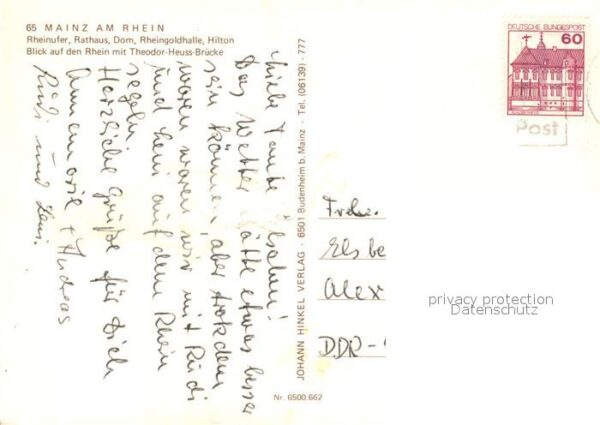 65 MAINZ AM RHEIN
Rheinufer, Rathaus, Dom, Rheingoldhalle, Hilton
Blick auf den Rhein mit Theodor-Heuss-Brücke
Liebe Tante Elsabein!
Das Wetter hätte etwas besser
sein können, aber trotzdem
waren waren wir mit Rudi
und Leni auf dem Rhein
segeln.
Herzliche Grüße für Dich
Annemarie + Andreas
Rudi und Leni.
JOHANN HINKEL VERLAG · 6501 Budenheim b. Mainz · Tel. (06139) · 777
Nr. 6500.662
DEUTSCHE BUNDESPOST
60
Post
Elsbe
Alex
DDR-
privacy protection
Datenschutz